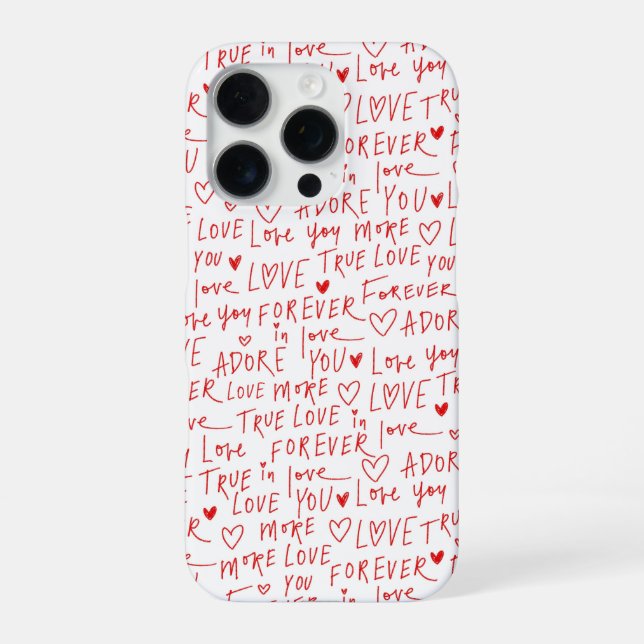 TRUE in love ♡ ADORE
YOU ♥ Love you
LOVE TRUE
FOREVER ♥
in love
ADORE YOU ♥ L
LOVE Love you MORE ♡ L
YOU ♥ LOVE TRUE LOVE YOU
love
Love you FOREVER FOREVER
in love ♡ ADOR
VE ADORE YOU ♥ Love you
ER LOVE MORE ♡ LOVE
ove TRUE LOVE in love
y Love FOREVER
T TRUE in love ♡ ADOR
LOVE YOU ♥ Love you
R ♡ MORE ♡ LOVE TRUE
MORE LOVE
YOU FOREVER ♥
in love